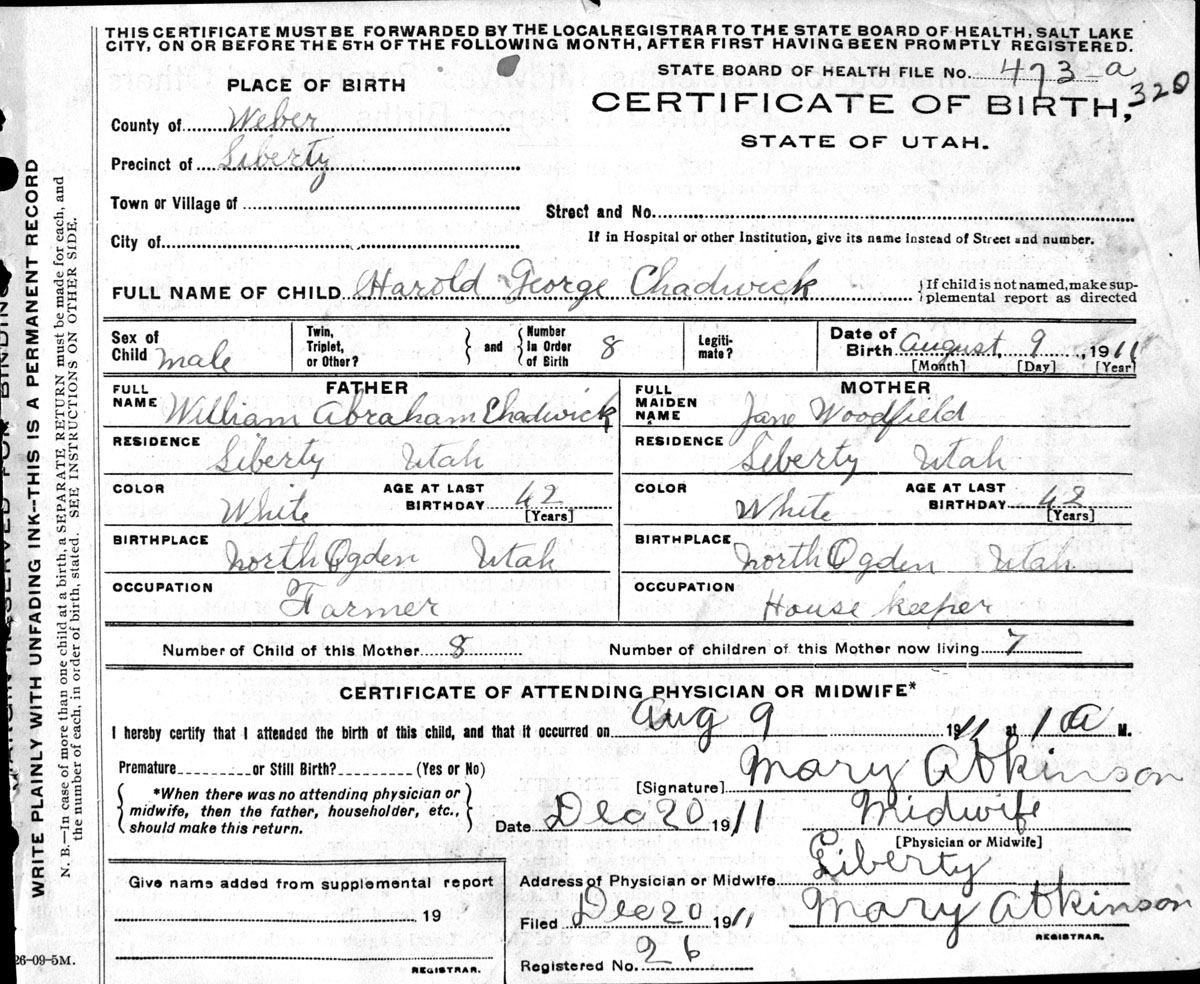 THIS CERTIFICATE MUST BE FORWARDED BY THE LOCALREGISTRAR TO THE STATE BOARD OF HEALTH, SALT LAKE
CITY, ON OR BEFORE THE 5TH OF THE FOLLOWING MONTH, AFTER FIRST HAVING BEEN PROMPTLY REGISTERED.
STATE BOARD OF HEALTH FILE No. 473-a
320
PLACE OF BIRTH
CERTIFICATE OF BIRTH,
STATE OF UTAH.
County of Weber
Precinct of Liberty
Town or Village of
Street and No.
City of
If in Hospital or other Institution, give its name instead of Street and number.
FULL NAME OF CHILD Harold George Chadwick
{If child is not named, make sup-
plemental report as directed
Sex of Child male
Twin, Triplet, or Other?
and
Number In Order of Birth 8
Legiti- mate?
Date of Birth August 9, 1911
[Month] [Day] [Year]
FATHER
MOTHER
FULL NAME William Abraham Chadwick
FULL MAIDEN NAME Jane Woodfield
RESIDENCE Liberty Utah
RESIDENCE Liberty Utah
COLOR White AGE AT LAST BIRTHDAY 42 [Years]
COLOR White AGE AT LAST BIRTHDAY 42 [Years]
BIRTHPLACE North Ogden Utah
BIRTHPLACE North Ogden Utah
OCCUPATION Farmer
OCCUPATION House keeper
Number of Child of this Mother 8 Number of children of this Mother now living 7
CERTIFICATE OF ATTENDING PHYSICIAN OR MIDWIFE*
I hereby certify that I attended the birth of this child, and that it occurred on Aug 9 1911 at 1 a M.
Premature or Still Birth? (Yes or No)
[Signature] Mary Atkinson
*When there was no attending physician or
midwife, then the father, householder, etc.,
should make this return.
Date Dec 20 1911 Midwife
[Physician or Midwife]
Give name added from supplemental report
Address of Physician or Midwife Liberty
19
Filed Dec 20 1911 Mary Atkinson
REGISTRAR.
REGISTRAR.
Registered No. 26
26-09-5M.
MARGIN RESERVED FOR BINDING
WRITE PLAINLY WITH UNFADING INK--THIS IS A PERMANENT RECORD
N. B.—In case of more than one child at a birth, a SEPARATE RETURN must be made for each, and
the number of each, in order of birth, stated. SEE INSTRUCTIONS ON OTHER SIDE.